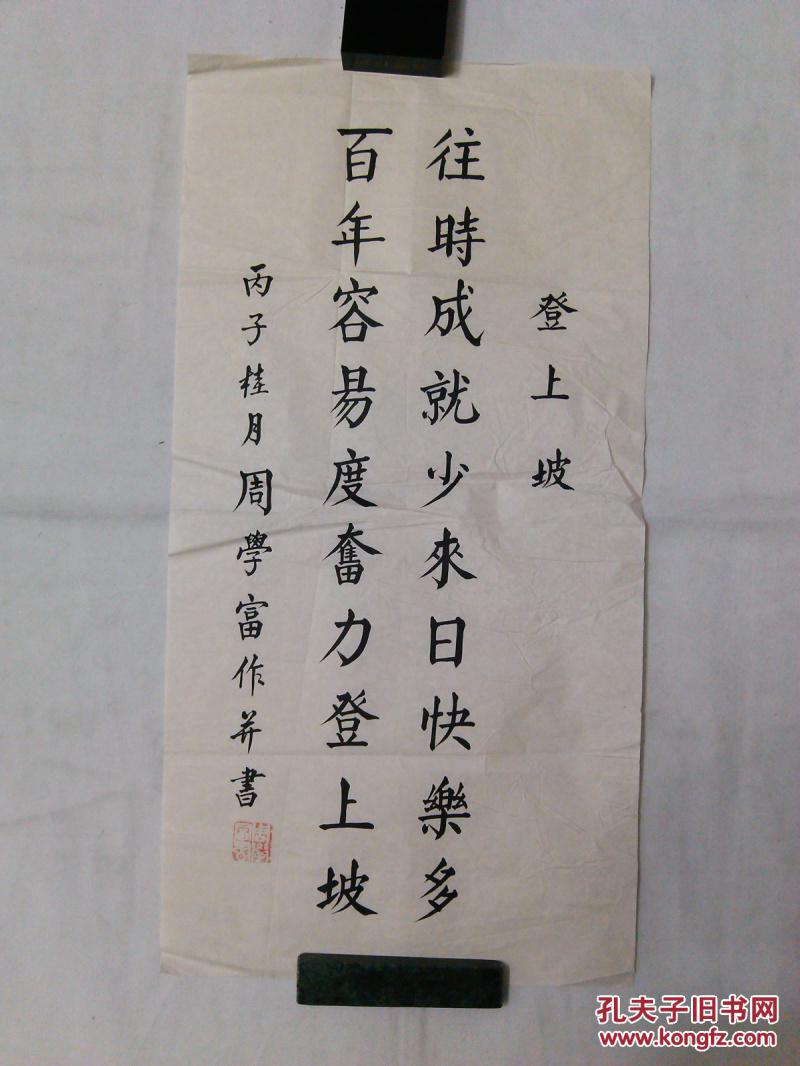 登上坡
往時成就少來日快樂多
百年容易度奮力登上坡
丙子桂月周學富作并書
孔夫子旧书网
www.kongfz.com